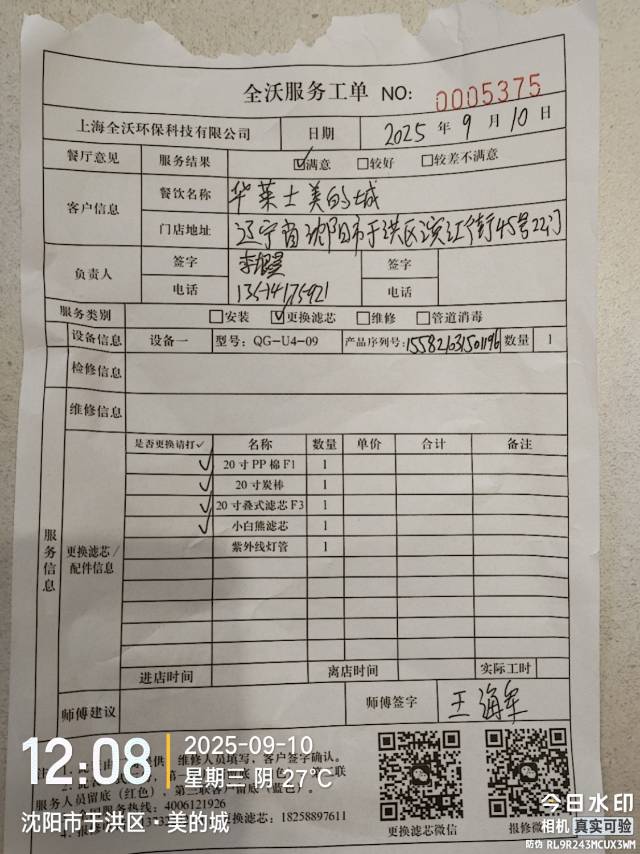 全沃服务工单 NO: 0005375
上海全沃环保科技有限公司 日期 2025 年 9 月 10 日
餐厅意见 服务结果 ☑满意 □较好 □较差不满意
客户信息 餐饮名称 华莱士美的城
门店地址 辽宁省沈阳市于洪区滨江街45号22门
负责人 签字 签字
电话 电话
服务类别 □安装 ☑更换滤芯 □维修 □管道消毒
设备信息 设备一 型号: QG-U4-09 产品序列号: 数量 1
检修信息
维修信息
服务信息
更换滤芯/配件信息
是否更换请打✓ 名称 数量 单价 合计 备注
✓ 20寸PP棉F1 1
✓ 20寸炭棒 1
✓ 20寸叠式滤芯F3 1
✓ 小白熊滤芯 1
紫外线灯管 1
进店时间 离店时间 实际工时
师傅建议 师傅签字 王海军
维修人员填写,客户签字确认。
服务人员留底(红色),第三联客户留底(蓝色)。
服务热线: 4006121926
18258897611
更换滤芯微信 报修微信
12:08
2025-09-10
星期三 阴 27℃
沈阳市于洪区·美的城
今日水印
相机 真实可验
防伪 RL9R243MCUX3WM